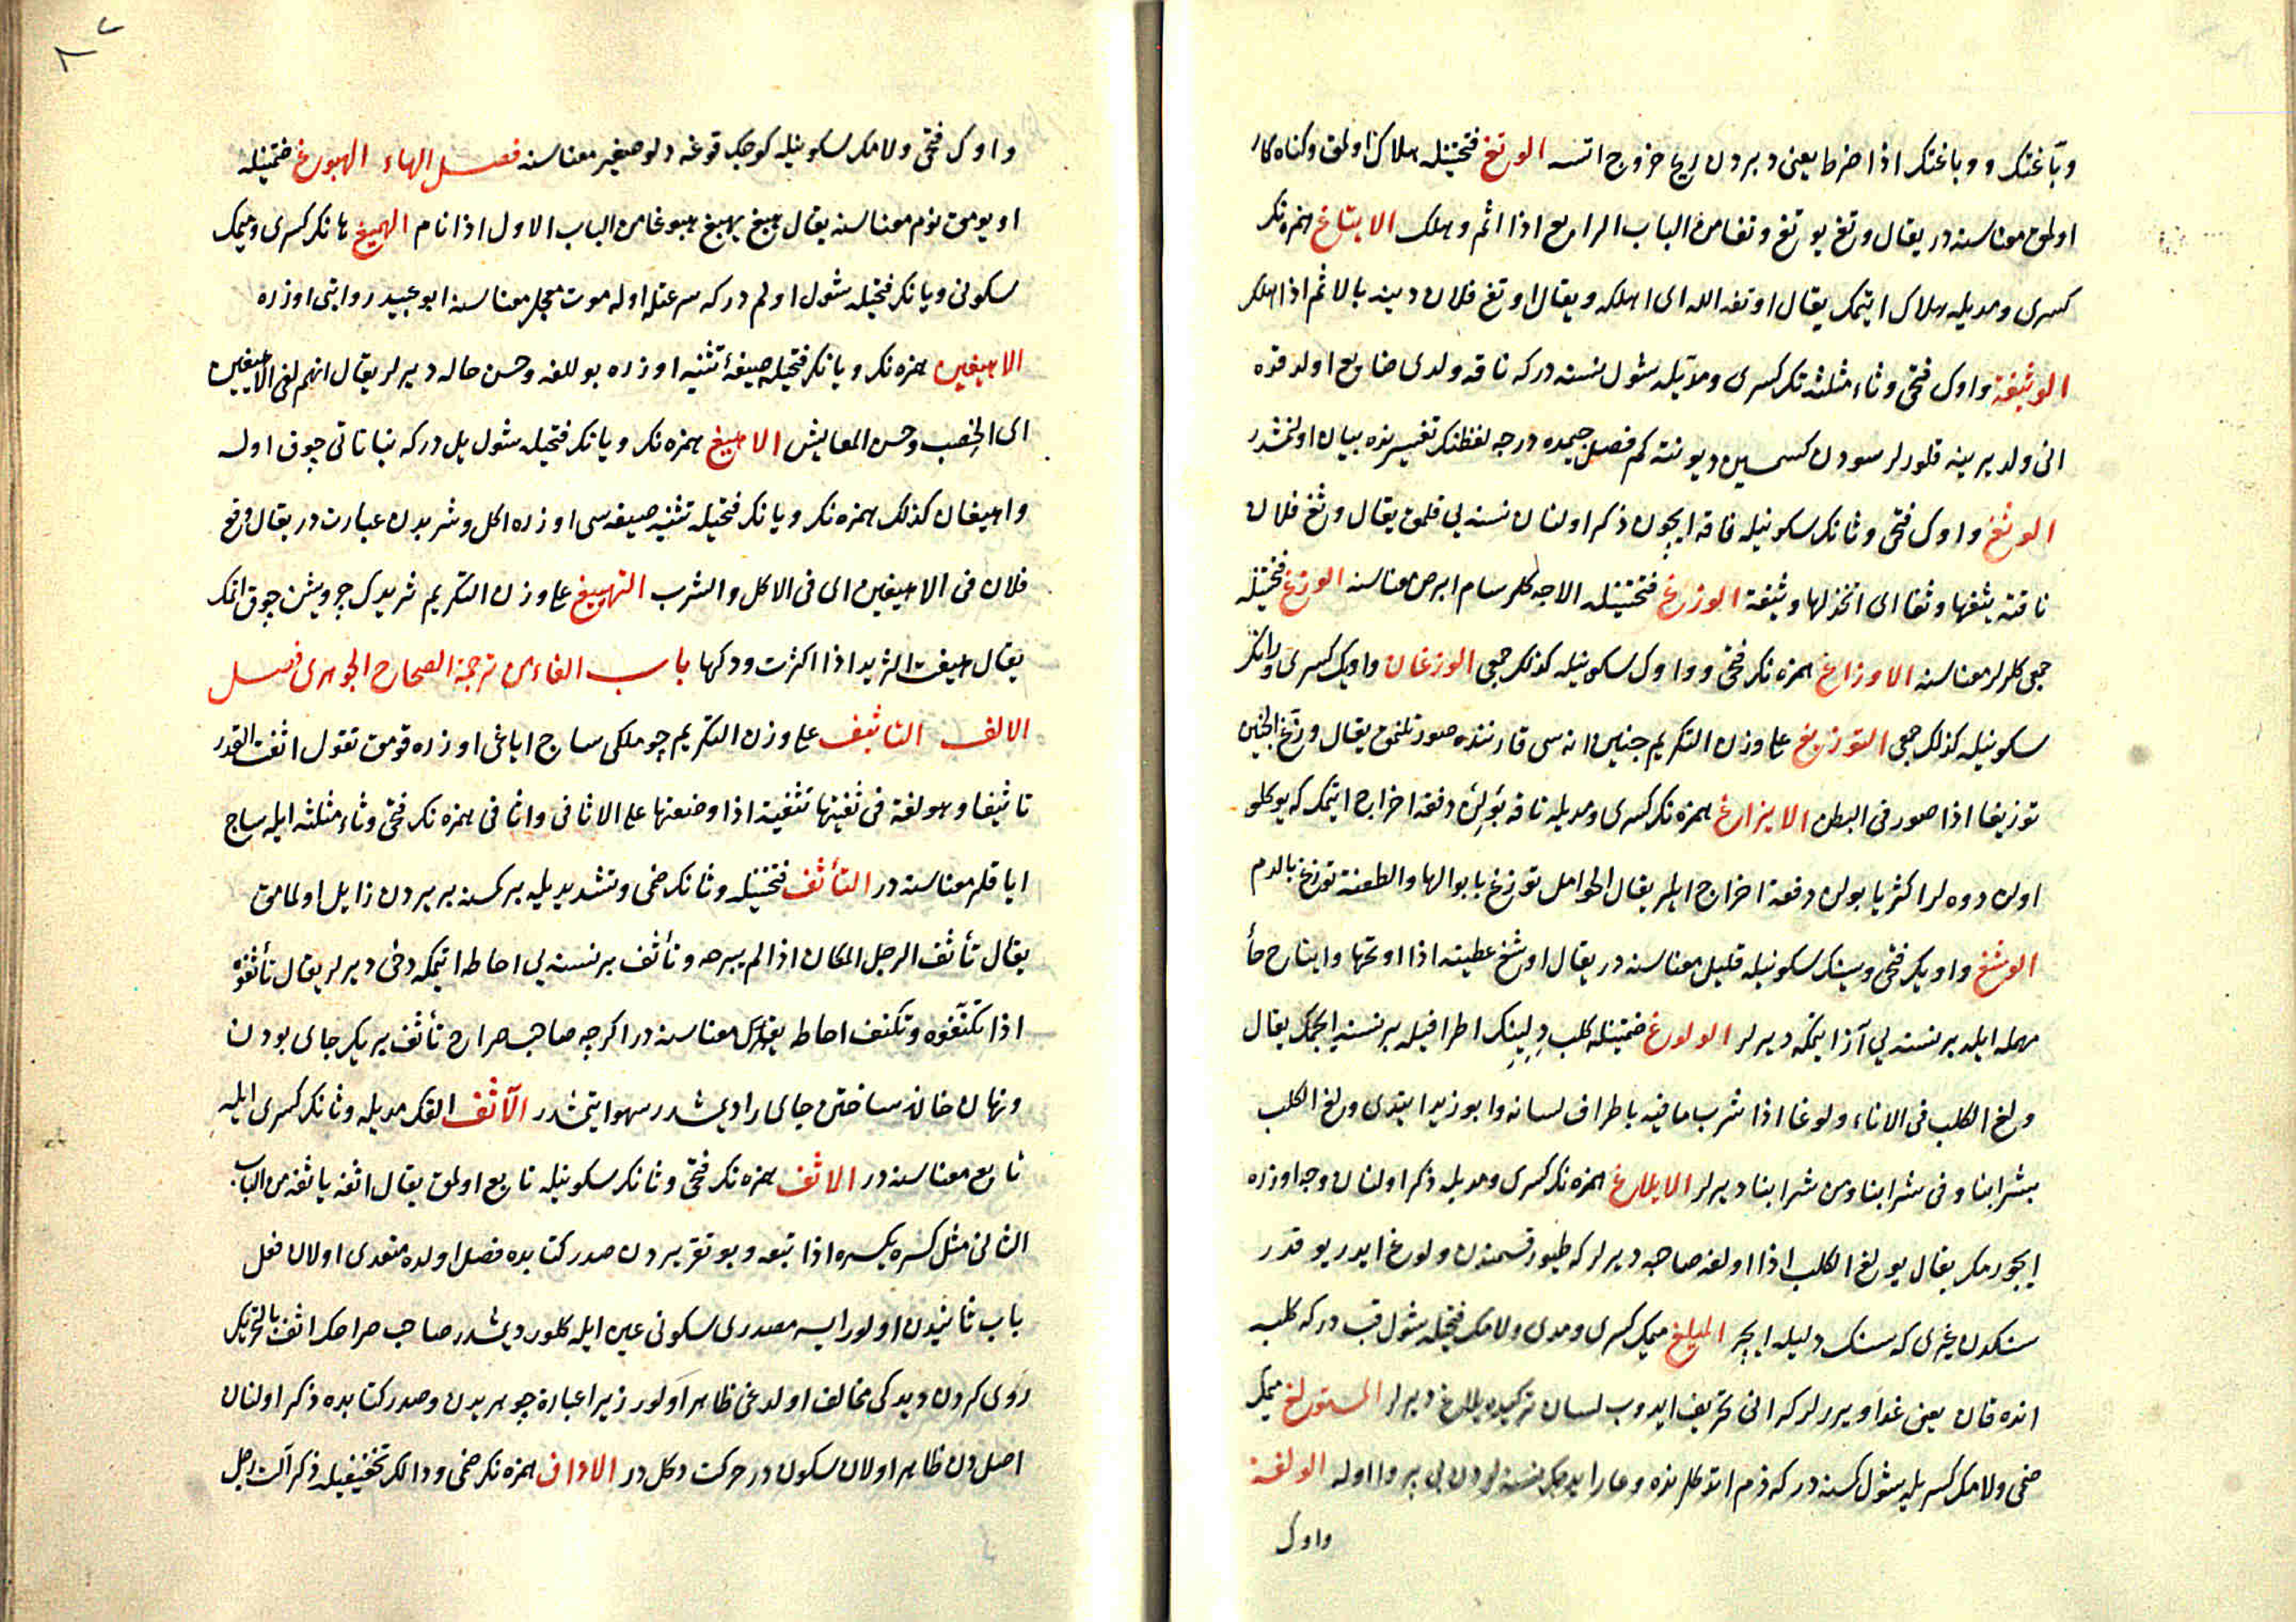 وبّاغتك و وباغتك اذا ضرط يعنى دبردن ريح خروج اتسه الوتغ فتحتينله هلاك اولمق وكناه كار
اولمق معناسنه در يقال وتغ يوتغ وتغا من الباب الرابع اذا اثم وهلك الايتاغ همزه نك
كسرى ومديله هلاك ايتمك يقال اوتغه الله اى اهلكه ويقال اوتغ فلان دينه بالاثم اذا اهلك
الوثيغة واوك فتحى وثاء مثلثه نك كسرى ومديله شول نسنه دركه ناقه ولدى ضايع اولدقده
انى ولد يرينه قلورلر سودن كسمسين ديو نته كم فصل جيمده درجه لفظنك تفسيرنده بيان اولنمشدر
الوثغ واوك فتحى وثانك سكونيله ناقه ايچون ذكر اولنان نسنه يى قلمق يقال وثغ فلان
ناقته يثغها وثغا اى اتخذلها وثيغة الوزغ فتحتينله الاجه كلر سام ابرص معناسنه الوزغ فتحتينله
جمعى كلرلر معناسنه الاوزاغ همزه نك فتحى وواوك سكونيله كذلك جمعى الوزغان واوك كسرى وزانك
سكونيله كذلك جمعى التوزيغ على وزن التكريم جنين اناسى قارننده صورتلنمق يقال وزّغ الجنين
توزيغا اذا صور فى البطن الايزاغ همزه نك كسرى ومديله ناقه بولين دفعة اخراج ايتمك كه يوكلو
اولن دوه لر اكثريا بولن دفعة اخراج ايلر يقال الحوامل توزغ بابوالها والطعنة توزغ بالدم
الوشغ واويك فتحى وشينك سكونيله قليل معناسنه در يقال اوشغ عطيته اذا اوتحها وايتاح حاء
مهمله ايله بر نسنه يى آز ايتمكه ديرلر الولوغ ضمتينله كلب دلينك اطرافيله بر نسنه ايچمك يقال
ولغ الكلب فى الاناء ولوغا اذا شرب مافيه باطراف لسانه وابو زيد ايتدى ولغ الكلب
بشرابنا وفى شرابنا ومن شرابنا ديرلر الايلاغ همزه نك كسرى ومديله ذكر اولنان وجه اوزره
ايچورمك يقال يولغ الكلب اذا اولغه صاحبه ديرلر كه طيور قسمندن ولوغ ايدر يوقدر
سنكدن غيرى كه سنك دليله ايچر الميلغ ميمك كسرى ومدى ولامك فتحيله شول قب دركه كلبه
انده قان يعنى غدا ويررلر كه انى تحريف ايدوب لسان تركيده يلاغ ديرلر المستولغ ميمك
ضمى ولامك كسريله شول كسنه دركه ذم اتدكلرنده وعار ايده جك نسنه لردن بى پروا اوله الولغة
واوك
واوك فتحى ولامك سكونيله كوچك قوغه دلو صغير معناسنه فصل الهاء الهبوغ ضمتينله
اويومق نوم معناسنه يقال هبغ يهبغ هبوغا من الباب الاول اذا نام الهميغ هانك كسرى وميمك
سكونى ويانك فتحيله شول اولم دركه سرعتله اوله موت معجل معناسنه ابو عبيد روايتى اوزره
الاهيغين همزه نك ويانك فتحيله صيغهٔ تثنيه اوزره بوللغه وحسن حاله ديرلر يقال انهم لفى الاهيغين
اى الخصب وحسن المعايش الاهيغ همزه نك ويانك فتحيله شول ييل دركه نباتاتى چوق اوله
واهيغان كذلك همزه نك ويانك فتحيله تثنيه صيغه سى اوزره اكل وشربدن عبارت در يقال وقع
فلان فى الاهيغين اى فى الاكل والشرب التهييغ على وزن التكريم ثريدك چرويشن چوق اتمك
يقال هيغت الثريد اذا اكثرت ودكها باب الفاء من ترجمة الصحاح الجوهرى فصل
الالف التاثيف على وزن التكريم چوملكى ساج اياغى اوزره قومق تقول اثفت القدر
تاثيفا وهو لغة فى ثفيتها تثفية اذا وضعتها على الاثافى واثافى همزه نك فتحى وثاء مثلثه ايله ساج
اياقلر معناسنه در التأثف فتحتينله وثانك ضمى وتشديديله بر كسنه بر يردن زايل اولمامق
يقال تأثف الرجل المكان اذا لم يبرحه وتأثف بر نسنه يى احاطه ايتمكه دخى ديرلر يقال تأثفوه
اذا تكنّفوه وتكنف احاطه معناسنه در اكرچه صاحب صراح تأثف بريكر جاى بودن
ونهان خانه ساختن جاى را ديمشدر سهو ايتمشدر الآثف الفك مديله وثانك كسرى ايله
تابع معناسنه در الاثف همزه نك فتحى وثانك سكونيله تابع اولمق يقال اثفه ياثفه من الباب
الثانى مثل كسره يكسره اذا تبعه وبو تقريردن صدر كتابده فصل اولده متعدى اولان فعل
باب ثانيدن اولور ايسه مصدرى سكونى عين ايله كلور ديمشدر صاحب صراحك اثف بالتحريك
روى كردن ديدكى مخالف اولدغى ظاهر اولور زيرا عبارة جوهريدن وصدر كتابده ذكر اولنان
اصلدن ظاهر اولان سكون در حركت دكل در الاداف همزه نك ضمى ودالك تخفيفيله ذكر آلت رجل